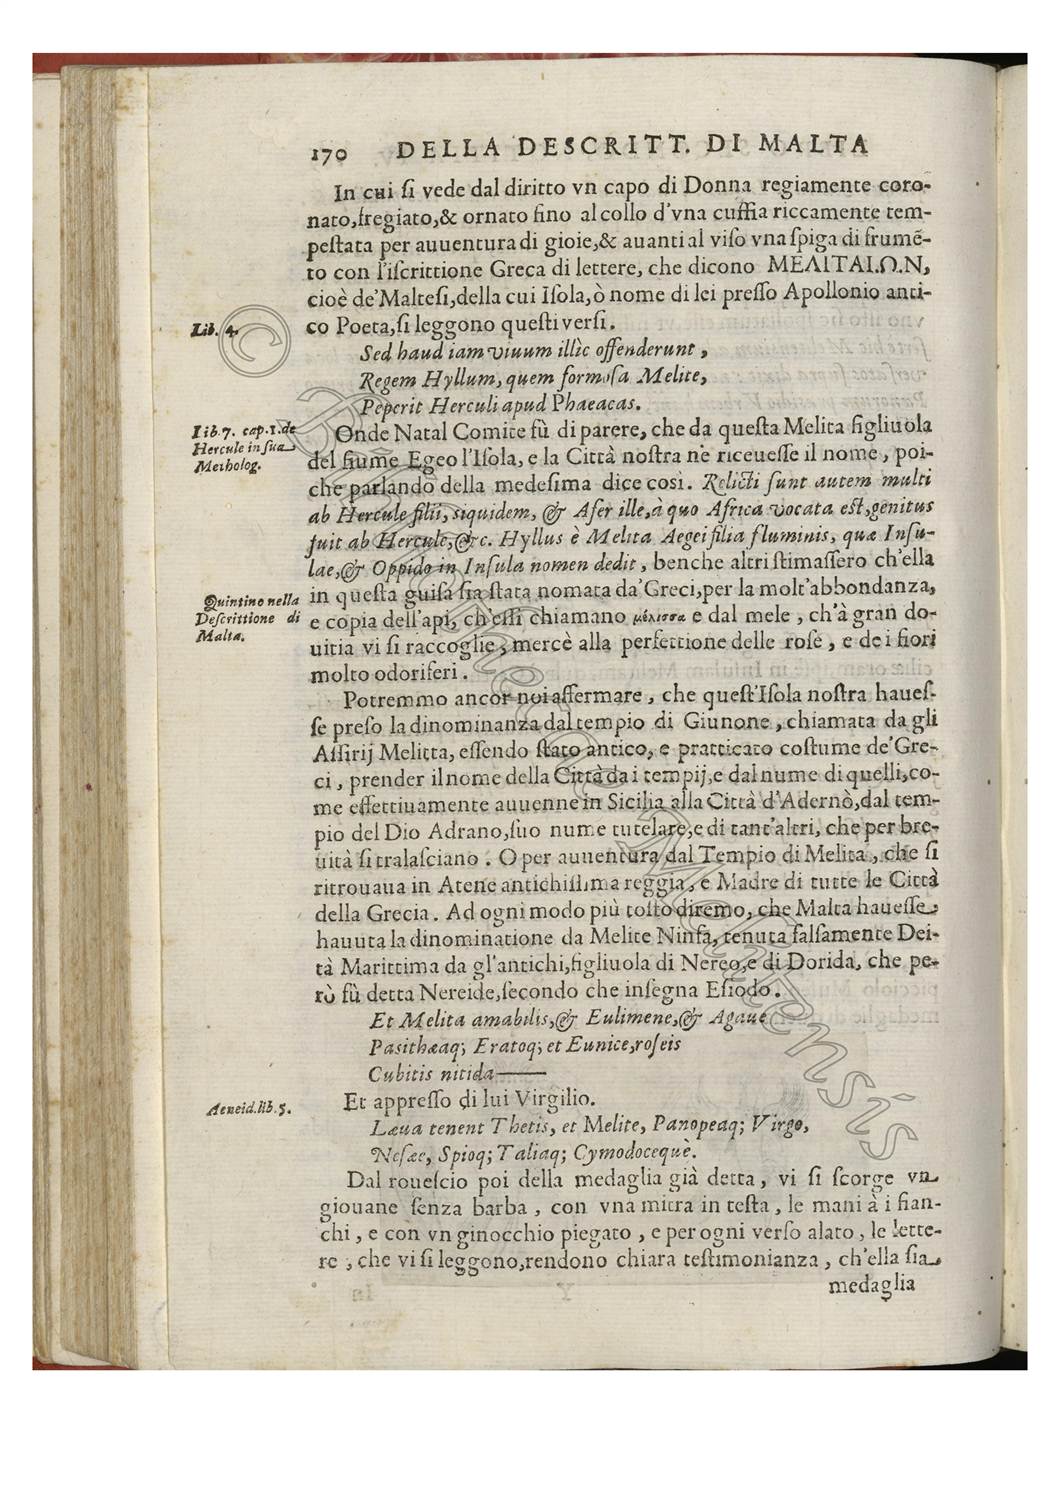 170 DELLA DESCRITT. DI MALTA
In cui ſi vede dal diritto vn capo di Donna regiamente coro-
nato, fregiato, & ornato fino al collo d'vna cuffia riccamente tem-
peſtata per auuentura di gioie, & auanti al viſo vna ſpiga di frumẽ-
to con l'iſcrittione Greca di lettere, che dicono ΜΕΛΙΤΑΙ.Ω.Ν,
cioè de'Malteſi, della cui Iſola, ò nome di lei preſſo Apollonio anti-
Lib. 4.
co Poeta, ſi leggono queſti verſi.
Sed haud iam viuum illìc offenderunt,
Regem Hyllum, quem formoſa Melite,
Peperit Herculi apud Phaeacas.
Lib. 7. cap. 1. de
Hercule in ſua
Metholog.
Onde Natal Comite fù di parere, che da queſta Melita figliuola
del fiume Egeo l'Iſola, e la Città noſtra nè riceueſſe il nome, poi-
che parlando della medeſima dice così. Relicti ſunt autem multi
ab Hercule filii, siquidem, & Afer ille, à quo Africa vocata eſt, genitus
fuit ab Hercule, &c. Hyllus è Melita Aegei filia fluminis, quæ Inſu-
lae, & Oppido in Inſula nomen dedit, benche altri ſtimaſſero ch'ella
Quintino nella
Deſcrittione di
Malta.
in queſta guiſa ſia ſtata nomata da'Greci, per la molt'abbondanza,
e copia dell'api, ch'eſſi chiamano μέλισσα e dal mele, ch'à gran do-
uitia vi ſi raccoglie, mercè alla perfettione delle roſe, e de i fiori
molto odoriferi.
Potremmo ancor noi affermare, che queſt'Iſola noſtra haueſ-
ſe preſo la dinominanza dal tempio di Giunone, chiamata da gli
Aſſirij Melitta, eſſendo ſtato antico, e pratticato coſtume de'Gre-
ci, prender il nome della Città da i tempij, e dal nume di quelli, co-
me effettiuamente auuenne in Sicilia alla Città d'Adernò, dal tem-
pio del Dio Adrano, ſuo nume tutelare, e di tant'altri, che per bre-
uità ſi tralaſciano. O per auuentura dal Tempio di Melita, che ſi
ritrouaua in Atene antichiſſima reggia, e Madre di tutte le Città
della Grecia. Ad ogni modo più toſto diremo, che Malta haueſſe
hauuta la dinominatione da Melite Ninfa, tenuta falſamente Dei-
tà Marittima da gl'antichi, figliuola di Nereo, e di Dorida, che pe-
rò fù detta Nereide, ſecondo che inſegna Eſiodo.
Et Melita amabilis, & Eulimene, & Agaue
Pasithæaq; Eratoq; et Eunice, roſeis
Cubitis nitida——
Aeneid. lib. 5.
Et appreſſo di lui Virgilio.
Læua tenent Thetis, et Melite, Panopeaq; Virgo,
Neſæe, Spioq; Taliaq; Cymodocequè.
Dal roueſcio poi della medaglia già detta, vi ſi ſcorge vn
giouane ſenza barba, con vna mitra in teſta, le mani à i fian-
chi, e con vn ginocchio piegato, e per ogni verſo alato, le lette-
re, che vi ſi leggono, rendono chiara teſtimonianza, ch'ella ſia
medaglia
© Bibliotheca Melitensis